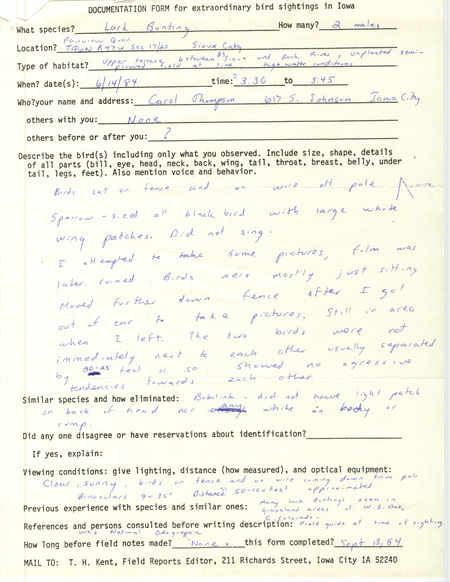 DOCUMENTATION FORM for extraordinary bird sightings in Iowa
What species? Lark Bunting How many? 2 males
Fairview Quad
Location? R47W Sec 17/20 Sioux City
Type of habitat? Upper terrace between Sioux and Rock Rivers, unplanted
field at time, high water conditions
When? date(s): 6/14/84 time: 3:30 to 3:45
Who? your name and address: Carol Thompson 617 S. Johnson Iowa City
others with you: None
others before or after you: ?
Describe the bird(s) including only what you observed. Include size, shape, details
of all parts (bill, eye, head, neck, back, wing, tail, throat, breast, belly, under
tail, legs, feet). Also mention voice and behavior.
Birds sat on fence and on wire off pole wire
Sparrow-sized all black bird with large white
wing patches. Did not sing.
I attempted to take some pictures, film was
later ruined Birds were mostly just sitting
Moved further down fence after I got
out of car to take pictures. Still in area
when I left. The two birds were not
immediately next to each other usually separated
by feet or so. Showed no agressive
tendencies towards each other.
Similar species and how eliminated: Bobolink - did not have light patch
on back of head nor any white on body or
rump.
Did any one disagree or have reservations about identification?
If yes, explain:
Viewing conditions: give lighting, distance (how measured), and optical equipment:
Clear, sunny, birds on fence and on wire coming down from pole
Binoculars 9x35 Distance 50-100 feet approximated
Previous experience with species and similar ones: Many Lark Buntings seen in
grassland areas of W S. Dak,
E Colorado.
References and persons consulted before writing description: Field guide at time of sighting
National Geographic
How long before field notes made? None. this form completed? Sept 13, 84
MAIL TO: T. H. Kent, Field Reports Editor, 211 Richards Street, Iowa City IA 52240